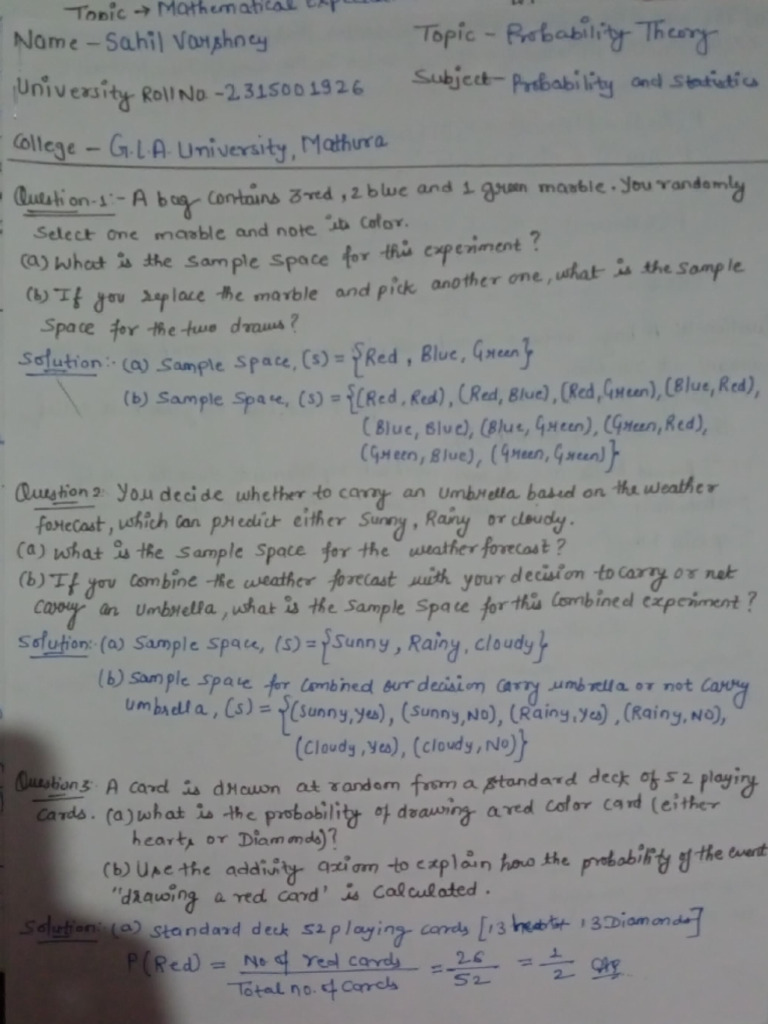 Topic → Mathematical
Name - Sahil Varshney
Topic - Probability Theory
University Roll No. - 2315001926
Subject - Probability and Statistics
College - G.L.A. University, Mathura
Question-1:- A bag contains 3 red, 2 blue and 1 green marble. You randomly
select one marble and note its color.
(a) What is the sample space for this experiment?
(b) If you replace the marble and pick another one, what is the sample
space for the two draws?
Solution:- (a) Sample Space, (S) = {Red, Blue, Green}
(b) Sample Space, (S) = {(Red, Red), (Red, Blue), (Red, Green), (Blue, Red),
(Blue, Blue), (Blue, Green), (Green, Red),
(Green, Blue), (Green, Green)}
Question 2: You decide whether to carry an Umbrella based on the weather
forecast, which can predict either Sunny, Rainy or cloudy.
(a) What is the sample space for the weather forecast?
(b) If you combine the weather forecast with your decision to carry or not
carry an Umbrella, what is the sample space for this combined experiment?
Solution:- (a) Sample Space, (S) = {Sunny, Rainy, cloudy}
(b) Sample space for combined our decision carry umbrella or not carry
Umbrella, (S) = {(Sunny, Yes), (Sunny, No), (Rainy, Yes), (Rainy, No),
(Cloudy, Yes), (cloudy, No)}
Question 3 A card is drawn at random from a standard deck of 52 playing
cards. (a) what is the probability of drawing a red color card (either
hearts or Diamonds)?
(b) Use the addivity axiom to explain how the probability of the event
"drawing a red card' is calculated.
Solution: (a) Standard deck 52 playing cards [13 13 Diamonds]
P(Red) = No of red cards / Total no. of Cards = 26/52 = 1/2